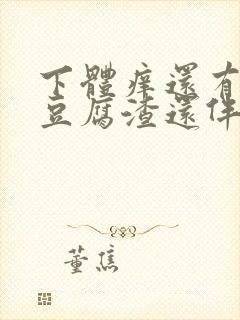 下體痒還有
豆腐渣還伴
董焦